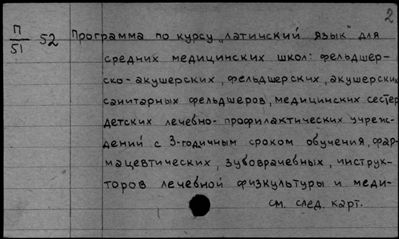 2
П/51 52 Программа по курсу "Латинский язык" для
средних медицинских школ: фельдшер-
ско-акушерских, фельдшерских, акушерских
санитарных фельдшеров, медицинских сестер
детских лечебно-профилактических учреж-
дений с 3-годичным сроком обучения, фар-
мацевтических, зубоврачебных, инструк-
торов лечебной физкультуры и меди-
см. след. карт.